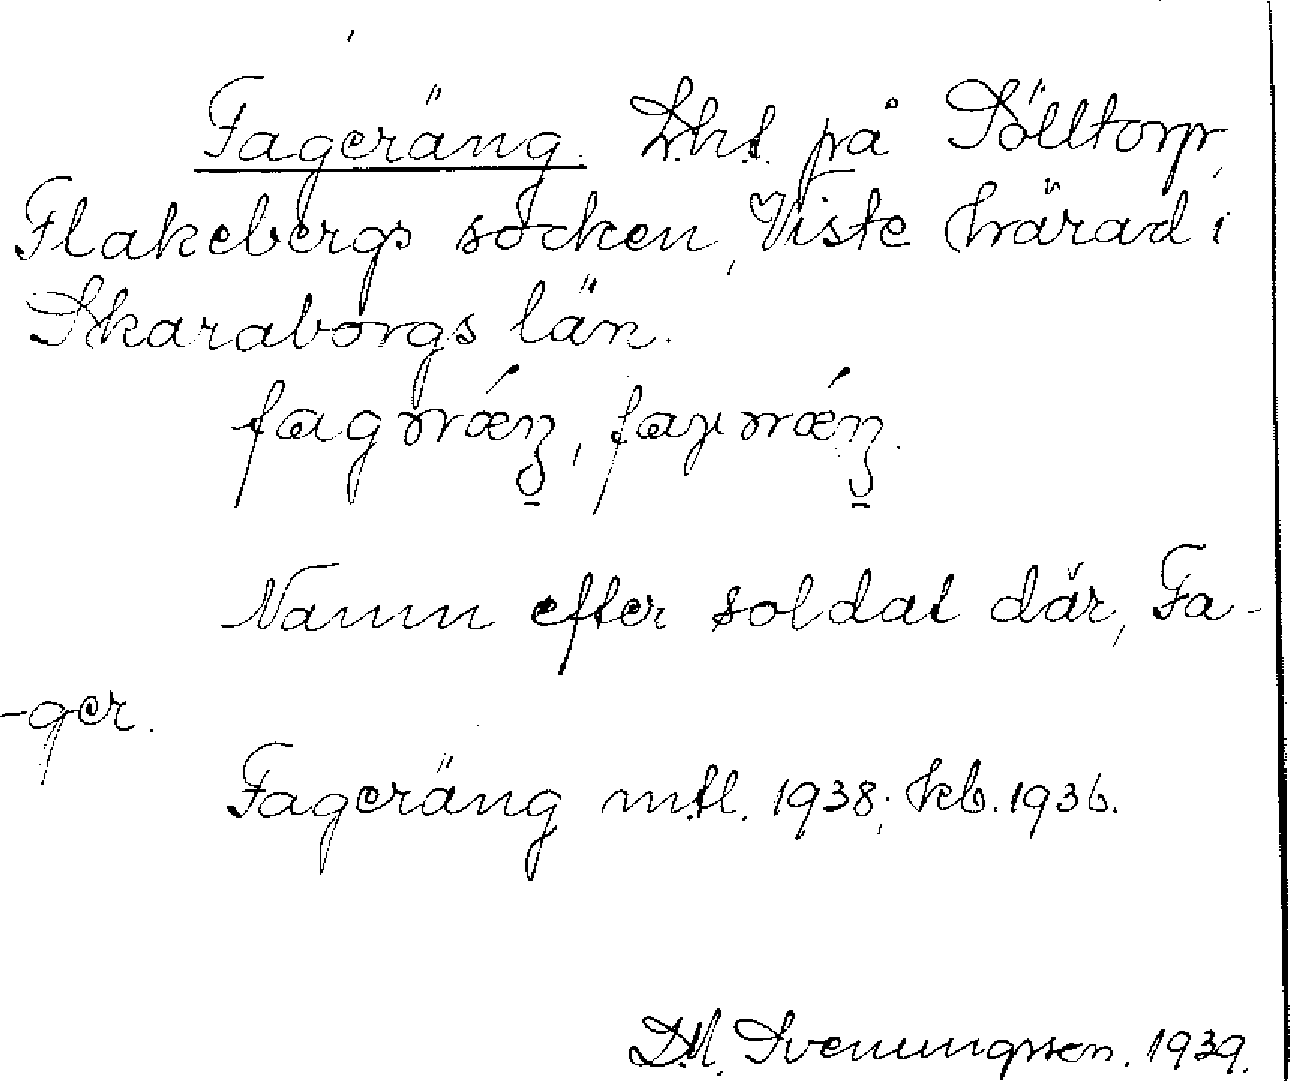 Fageräng. Lht. på Sölltorp,
Flakebergs socken, Viste härad i
Skaraborgs län.
Namn efter soldat där, Fa-
-ger.
Fageräng mtl. 1938; kb. 1936.
D.M. Svenungsson. 1939.